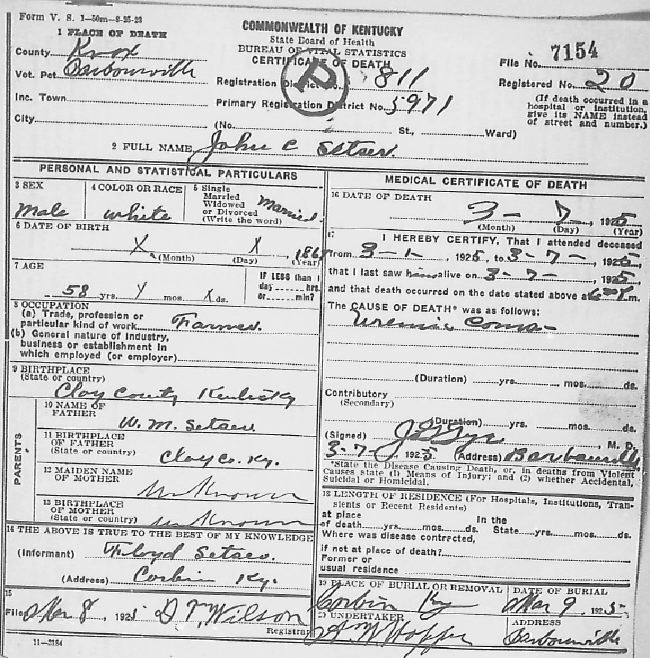 Form V. S. 1-50m-8-25-23
COMMONWEALTH OF KENTUCKY
State Board of Health
BUREAU OF VITAL STATISTICS
CERTIFICATE OF DEATH
1 PLACE OF DEATH
County Knox
Vot. Pct Barbourville
Inc. Town
City
P
Registration District No. 811
Primary Registration District No. 5971
(No. St., Ward)
File No. 7154
Registered No. 20
(If death occurred in a
hospital or institution,
give its NAME instead
of street and number.)
2 FULL NAME John C Setser
PERSONAL AND STATISTICAL PARTICULARS
3 SEX
Male
4 COLOR OR RACE
White
5 Single
Married
Widowed
or Divorced
(Write the word)
Married
6 DATE OF BIRTH
X X
(Month) (Day) (Year)
7 AGE
58 yrs. mos. ds.
IF LESS than 1
day hrs.
or min?
8 OCCUPATION
(a) Trade, profession or
particular kind of work Farmer
(b) General nature of industry,
business or establishment in
which employed (or employer)
9 BIRTHPLACE
(State or country)
Clay County Kentucky
PARENTS
10 NAME OF
FATHER
W. M. Setser
11 BIRTHPLACE
OF FATHER
(State or country)
Clay Co. Ky.
12 MAIDEN NAME
OF MOTHER
Unknown
13 BIRTHPLACE
OF MOTHER
(State or country)
Unknown
14 THE ABOVE IS TRUE TO THE BEST OF MY KNOWLEDGE
(Informant) Floyd Setser
(Address) Corbin Ky.
15
Filed Mar 8, 1925 Wilson
Registrar
11-3184
MEDICAL CERTIFICATE OF DEATH
16 DATE OF DEATH
3 - 7, 1925
(Month) (Day) (Year)
17 I HEREBY CERTIFY, That I attended deceased
from 3-1-, 1925, to 3-7-, 1925
that I last saw him alive on 3-7-, 1925
and that death occurred on the date stated above at m.
The CAUSE OF DEATH* was as follows:
Uremic Coma
(Duration) yrs. mos. ds.
Contributory
(Secondary)
(Duration) yrs. mos. ds.
(Signed) M. D.
3-7, 1925 (Address) Barbourville
*State the Disease Causing Death, or, in deaths from Violent
Causes state (1) Means of Injury; and (2) whether Accidental,
Suicidal or Homicidal.
18 LENGTH OF RESIDENCE (For Hospitals, Institutions, Tran-
sients or Recent Residents)
at place In the
of death yrs. mos. ds. State yrs. mos. ds.
Where was disease contracted,
if not at place of death?
Former or
usual residence
19 PLACE OF BURIAL OR REMOVAL
Corbin Ky
DATE OF BURIAL
Mar 9 1925
20 UNDERTAKER
Hopper
ADDRESS
Barbourville